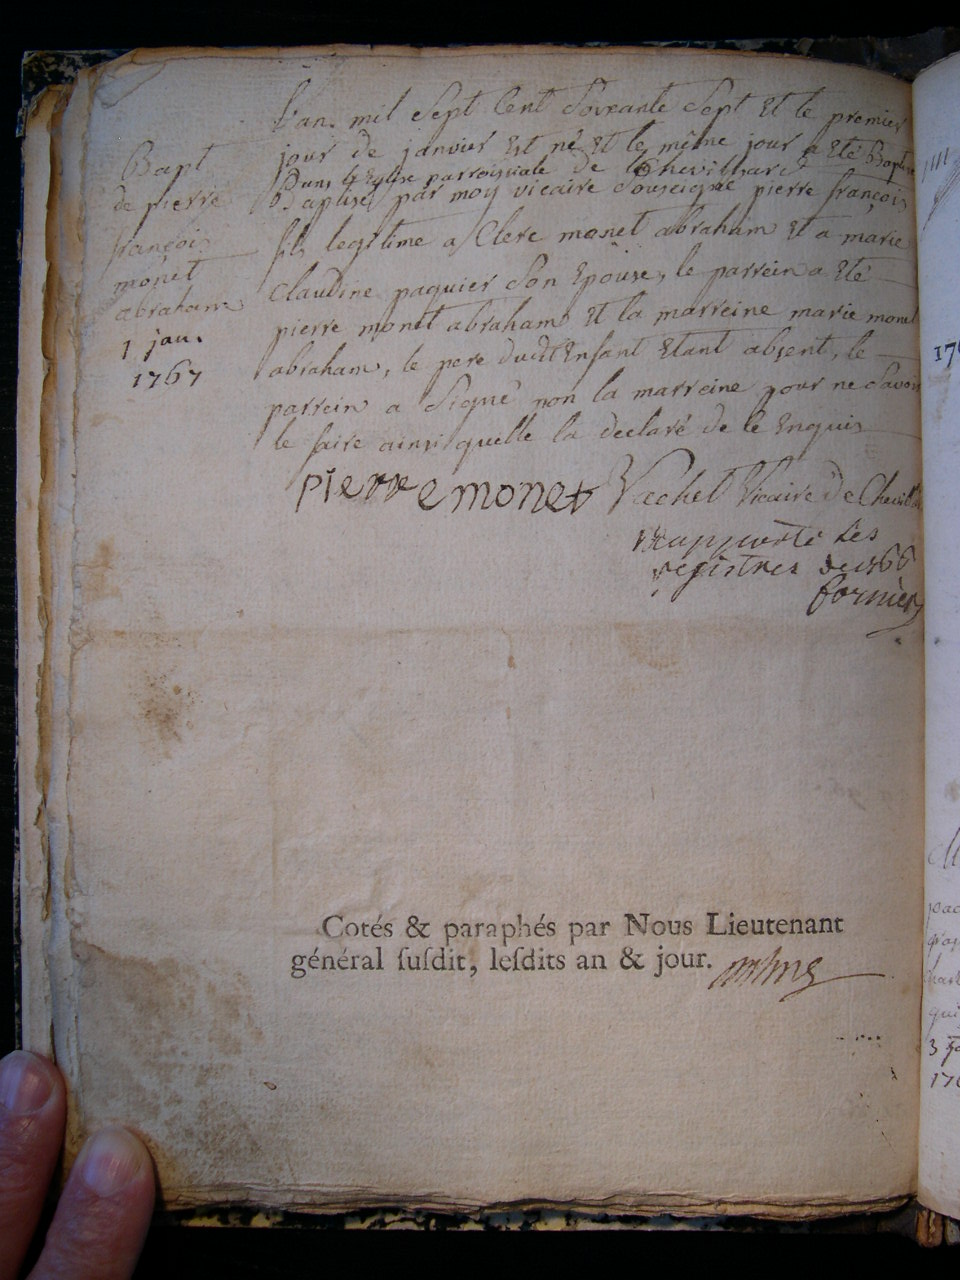 Bapt
de pierre
françois
monet
abraham
1 janv.
1767
L'an mil sept Cent soixante sept Et le premier
jour de janvier Est né Et le même jour a Eté Baptisé
Dans l'Eglise parroissiale de Chevillard
Baptisé par moy vicaire soussigné pierre françois
fils legitime a Clere monet abraham Et a marie
Claudine paquier son Epouse, le parrein a Eté
pierre monet abraham Et la marreine marie monet
abraham, le pere dudt Enfant Etant absent, le
parrein a signé non la marreine pour ne savoir
le faire ainsi quelle la declaré de le Enquis
Pierre monet Vachet Vicaire de Chevillard
rapporté les
registres de 1766
fornier
Cotés & paraphés par Nous Lieutenant
général ſuſdit, leſdits an & jour.